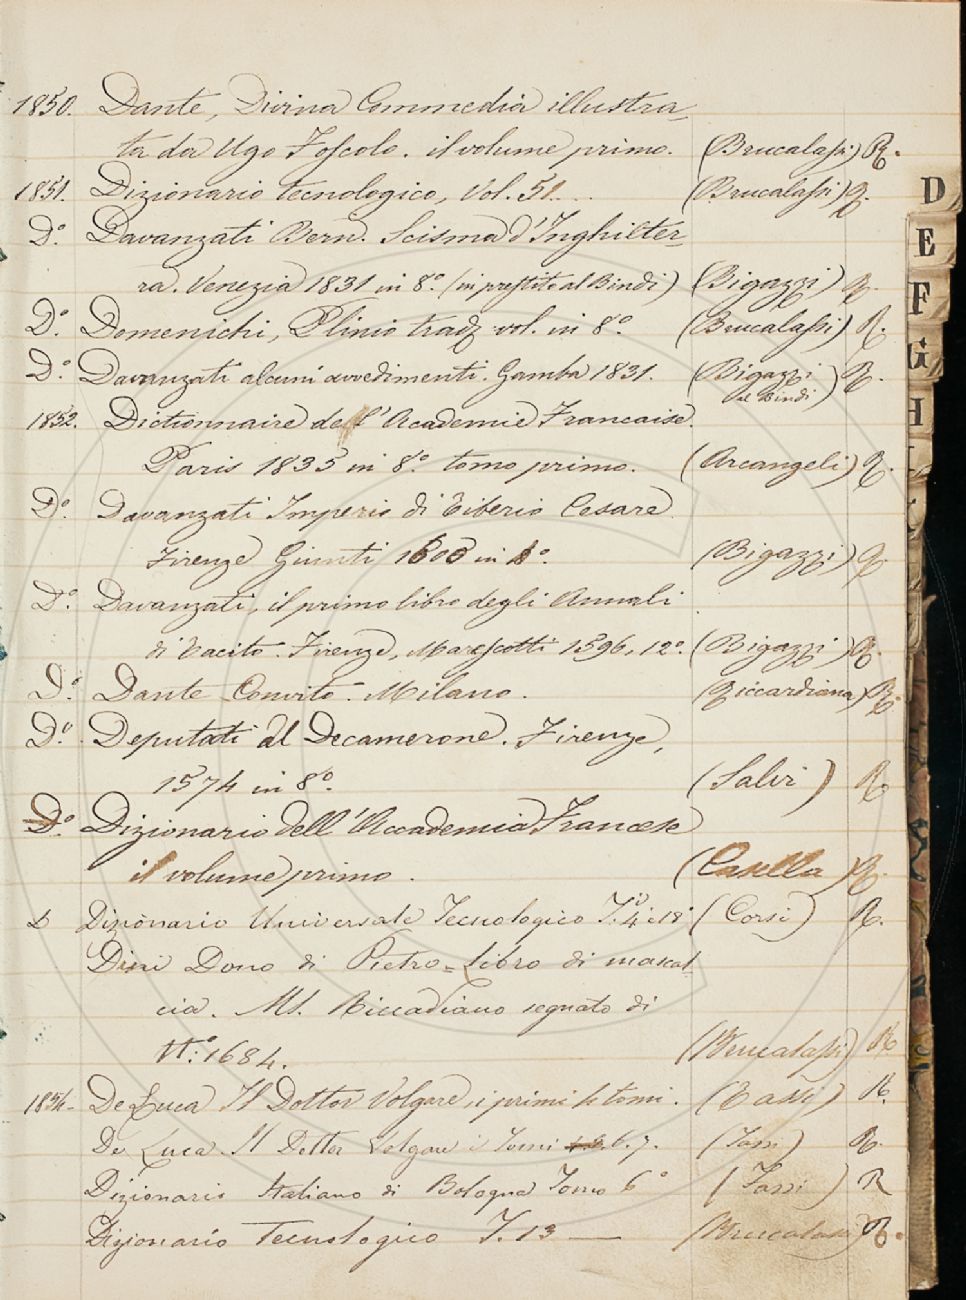 1850. Dante, Divina Commedia illustra-
ta da Ugo Foscolo. il volume primo. (Brucalassi) R.
1851. Dizionario tecnologico, Vol. 51... (Brucalassi) R.
D.° Davanzati Bern. Scisma d'Inghilter-
ra. Venezia 1831 in 8.° (in prestito al Bindi) (Bigazzi) R.
D.° Domenichi, Plinio trad vol. in 8.° (Brucalassi) R.
D.° Davanzati alcuni avvedimenti. Gamba 1831. (Bigazzi
al Bindi) R.
1852. Dictionnaire dell'Academie Francaise.
Paris 1835 in 8.° tomo primo. (Arcangeli) R.
D.° Davanzati Imperio di Tiberio Cesare
Firenze Giunti 1600 in 4.° (Bigazzi) R
D.° Davanzati, il primo libro degli Annali
di Tacito. Firenze, Marescotti 1596, 12.° (Bigazzi) R.
D.° Dante Convito. Milano. (Riccardiana) R.
D.° Deputati al Decamerone. Firenze,
1574 in 8.° (Salvi) R
D.° Dizionario dell'Accademia Francese
il volume primo. (Casella) R.
D Dizionario Universale Tecnologico T.i 4 e 18 (Corsi) R.
Dini Dono di Pietro - Libro di mascal-
cia. Ms. Riccadiano segnato di
N.° 1684. (Brucalassi) R
1854. De Luca Il Dottor Volgare, i primi tomi. (Tassi) R.
De Luca Il Dottor Volgare i Tomi 6. 7. (Tassi) R.
Dizionario Italiano di Bologna Tomo 6° (Tassi) R
Dizionario Tecnologico T. 13 — (Brucalassi) R.
D
E
F
G
H